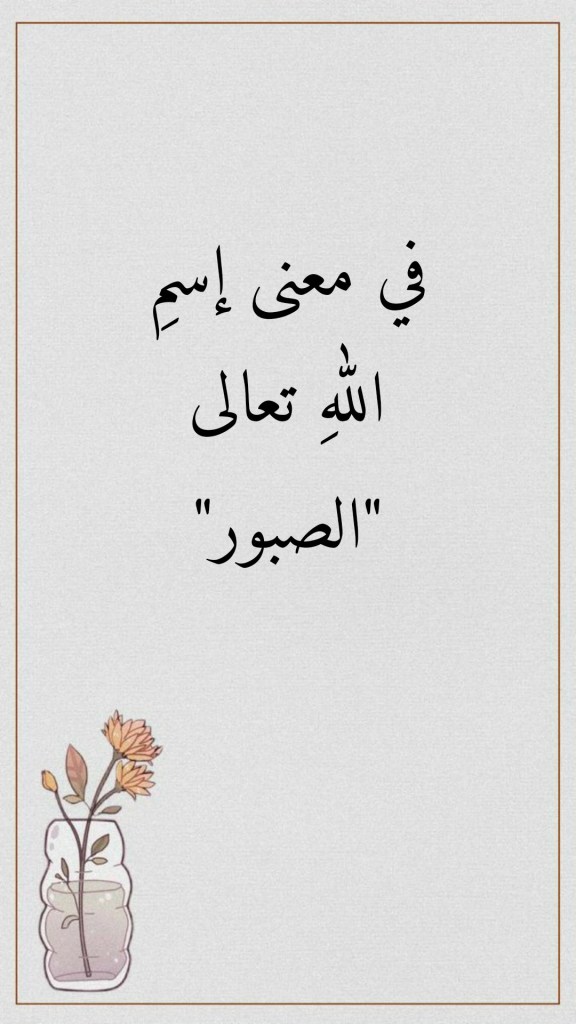 في معنى إسمِ
اللهِ تعالى
"الصبور"